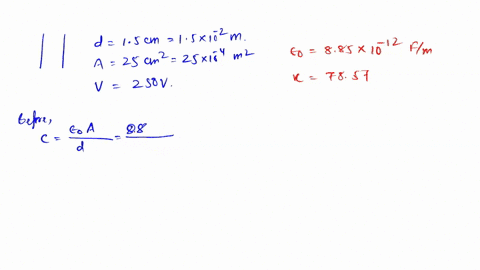 d = 1.5 cm = 1.5 × 10⁻² m.
A = 25 cm² = 25 × 10⁻⁴ m²
V = 250 V.
ε₀ = 8.85 × 10⁻¹² F/m
κ = 78.57
Before,
C = ε₀ A / d = 88